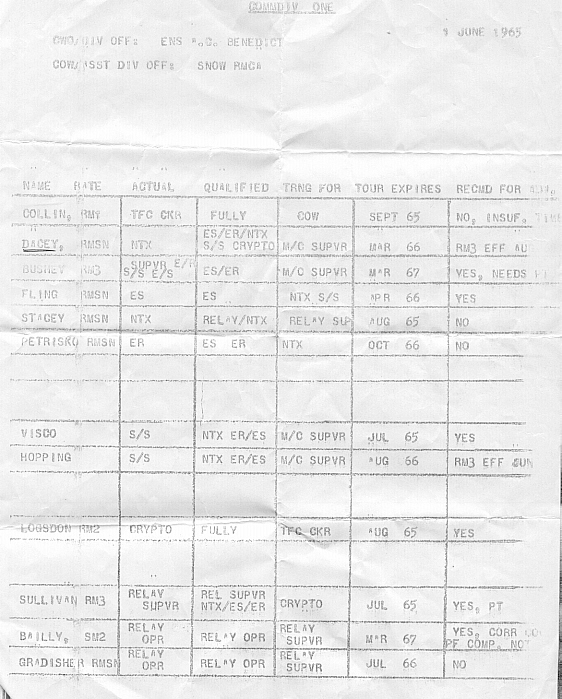 COMMDIV ONE
9 JUNE 1965
CWO/DIV OFF: ENS A.C. BENEDICT
COW/ASST DIV OFF: SNOW RMCA
NAME RATE ACTUAL QUALIFIED TRNG FOR TOUR EXPIRES RECMD FOR
COLLIN, RM1 TFC CKR FULLY COW SEPT 65 NO, INSUF. TIME
DACEY, RMSN NTX ES/ER/NTX S/S CRYPTO M/C SUPVR MAR 66 RM3 EFF AU
BUSHEY RM3 SUPVR E/R S/S E/S ES/ER M/C SUPVR MAR 67 YES, NEEDS
FLING RMSN ES ES NTX S/S APR 66 YES
STACEY RMSN NTX RELAY/NTX RELAY SUP AUG 65 NO
PETRISKO RMSN ER ES ER NTX OCT 66 NO
VISCO S/S NTX ER/ES M/C SUPVR JUL 65 YES
HOPPING S/S NTX ER/ES M/C SUPVR AUG 66 RM3 EFF JUN
LOGSDON RM2 CRYPTO FULLY TFC CKR AUG 65 YES
SULLIVAN RM3 RELAY SUPVR REL SUPVR NTX/ES/ER CRYPTO JUL 65 YES, PT
BAILLY, SM2 RELAY OPR RELAY OPR RELAY SUPVR MAR 67 YES, CORR CO PF COMP. NOT
GRADISHER RMSN RELAY OPR RELAY OPR RELAY SUPVR JUL 66 NO